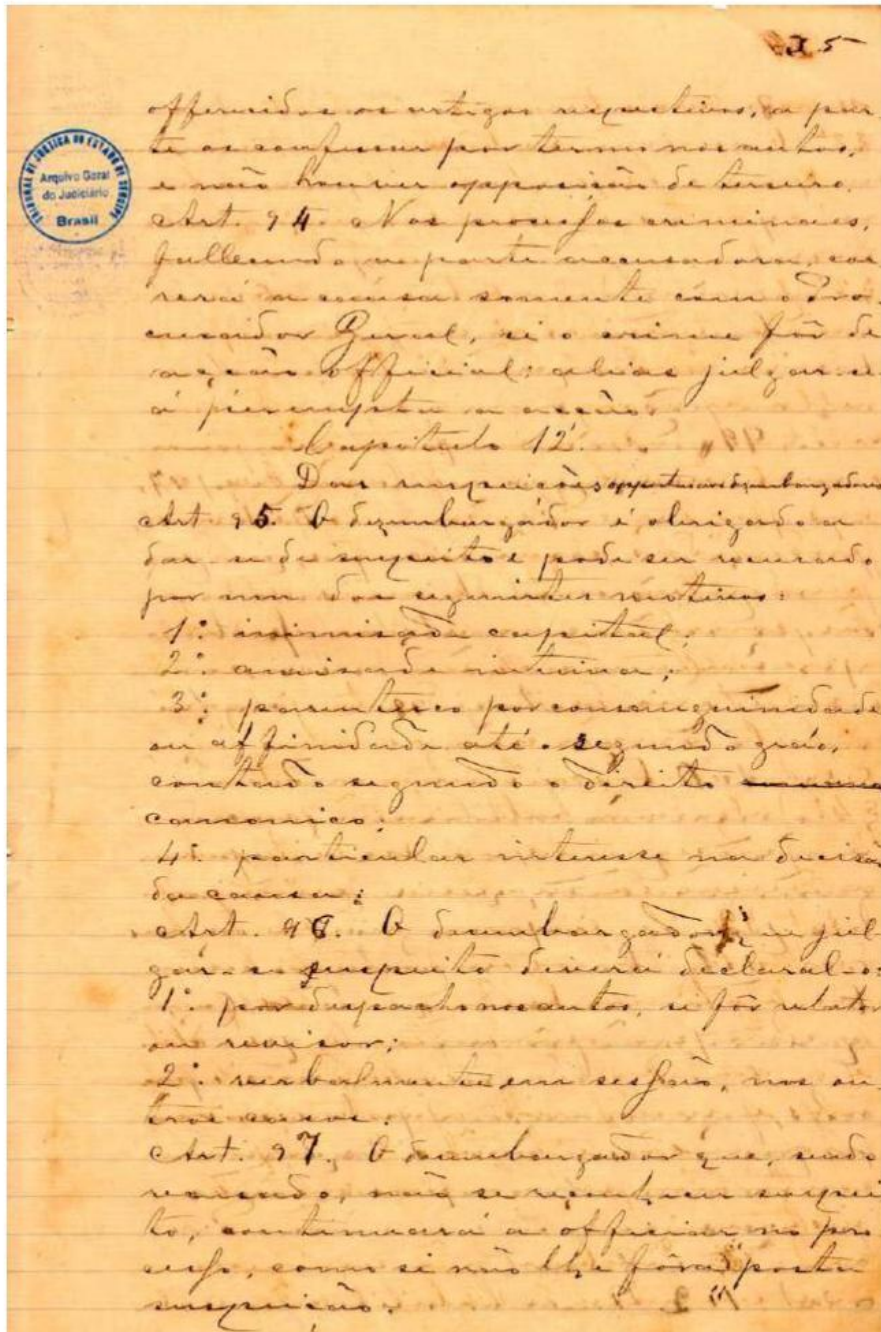 25
offerecidos os artigos respectivos, a par
te os confessar por termo nos autos,
e não houver opposição de terceiro.
TRIBUNAL DE JUSTIÇA DO ESTADO DE SERGIPE
Arquivo Geral
do Judiciário
Brasil
Art. 94. Nos processos criminaes,
fallecendo a parte accusadora, cor
rerá a causa somente com o Pro
curador Geral, si o crime fôr de
acção official; alias julgar-se
á perempta a acção.
Capitulo 12º
Das suspeições oppostas aos dezembargadores
Art. 95. O dezembargador é obrigado a
dar-se de suspeito e pode ser recusado
por um dos seguintes motivos:
1º: inimisade capital;
2º: amisade intima;
3º: parentesco por consanguinidade
ou affinidade até o segundo gráo,
contado segundo o direito
canonico;
4º: particular interesse na decisão
da causa;
Art. 96. O desembargador se jul
gar-se suspeito deverá declaral-o:
1º por despacho nos autos, se fôr relator
ou revisor;
2º: verbalmente em sessão, nos ou
tros casos.
Art. 97. O desembargador que, sendo
recusado, não se reconhecer suspei
to, continuará a officiar no pro
cesso, como si não lhe fôra posta
suspeição.